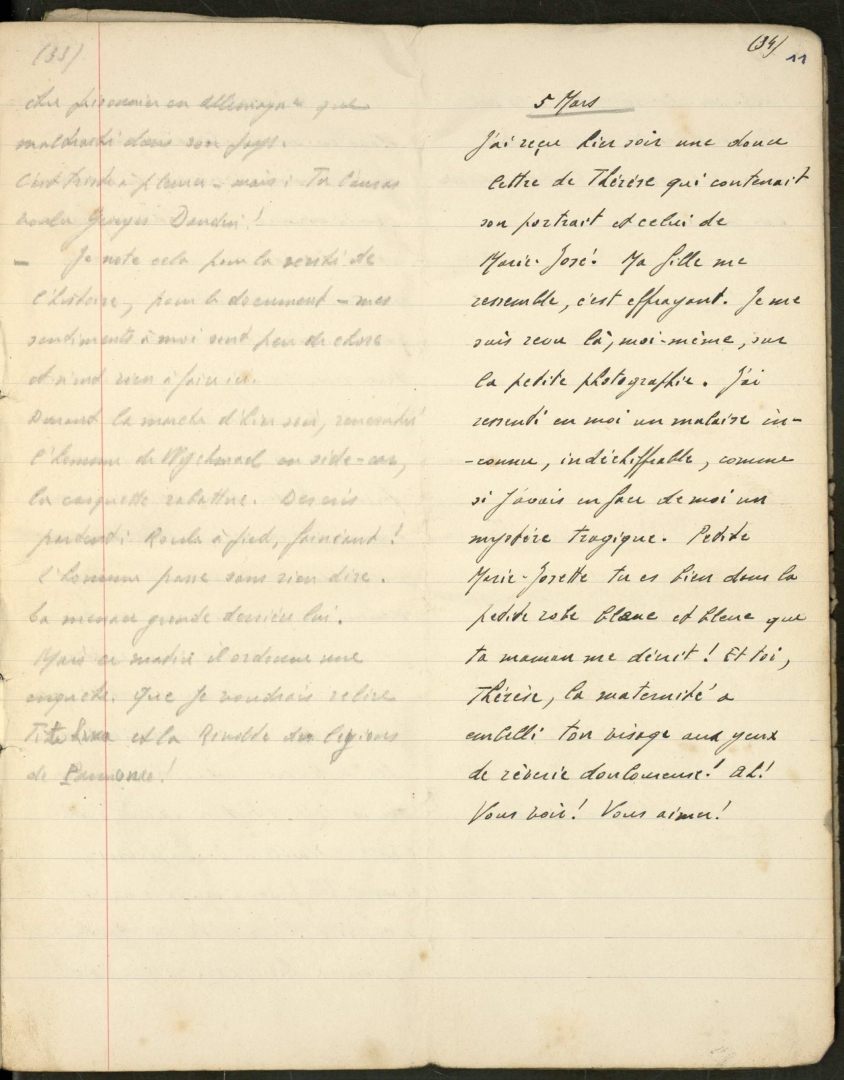 (33)
être prisonnier en Allemagne que
maltraité dans son pays.
C'est triste à pleurer - mais : Tu l'auras
voulu Georges Dandin !
— Je note cela pour la vérité de
l'histoire, pour le document - mes
sentiments à moi sont peu de chose
et n'ont rien à faire ici.
Durant la marche d'hier soir, rencontré
l'homme de en side-car,
la casquette rabattue. Des cris
partent : à pied, fainéant !
l'homme passe sans rien dire.
La menace gronde derrière lui.
Mais ce matin il ordonne une
enquête. Que je voudrais relire
Tite et la Révolte des légions
de Pannonie !
(34)
11
5 Mars
J'ai reçu hier soir une douce
lettre de Thérèse qui contenait
son portrait et celui de
Marie-José. Ma fille me
ressemble, c'est effrayant. Je me
suis revu là, moi-même, sur
la petite photographie. J'ai
ressenti en moi un malaise in-
-connu, indéchiffrable, comme
si j'avais en face de moi un
mystère tragique. Petite
Marie-Josette tu es bien dans la
petite robe blanc et bleue que
ta maman me décrit ! Et toi,
Thérèse, la maternité a
embelli ton visage aux yeux
de rêverie douloureuse ! Ah !
Vous voir ! Vous aimer !